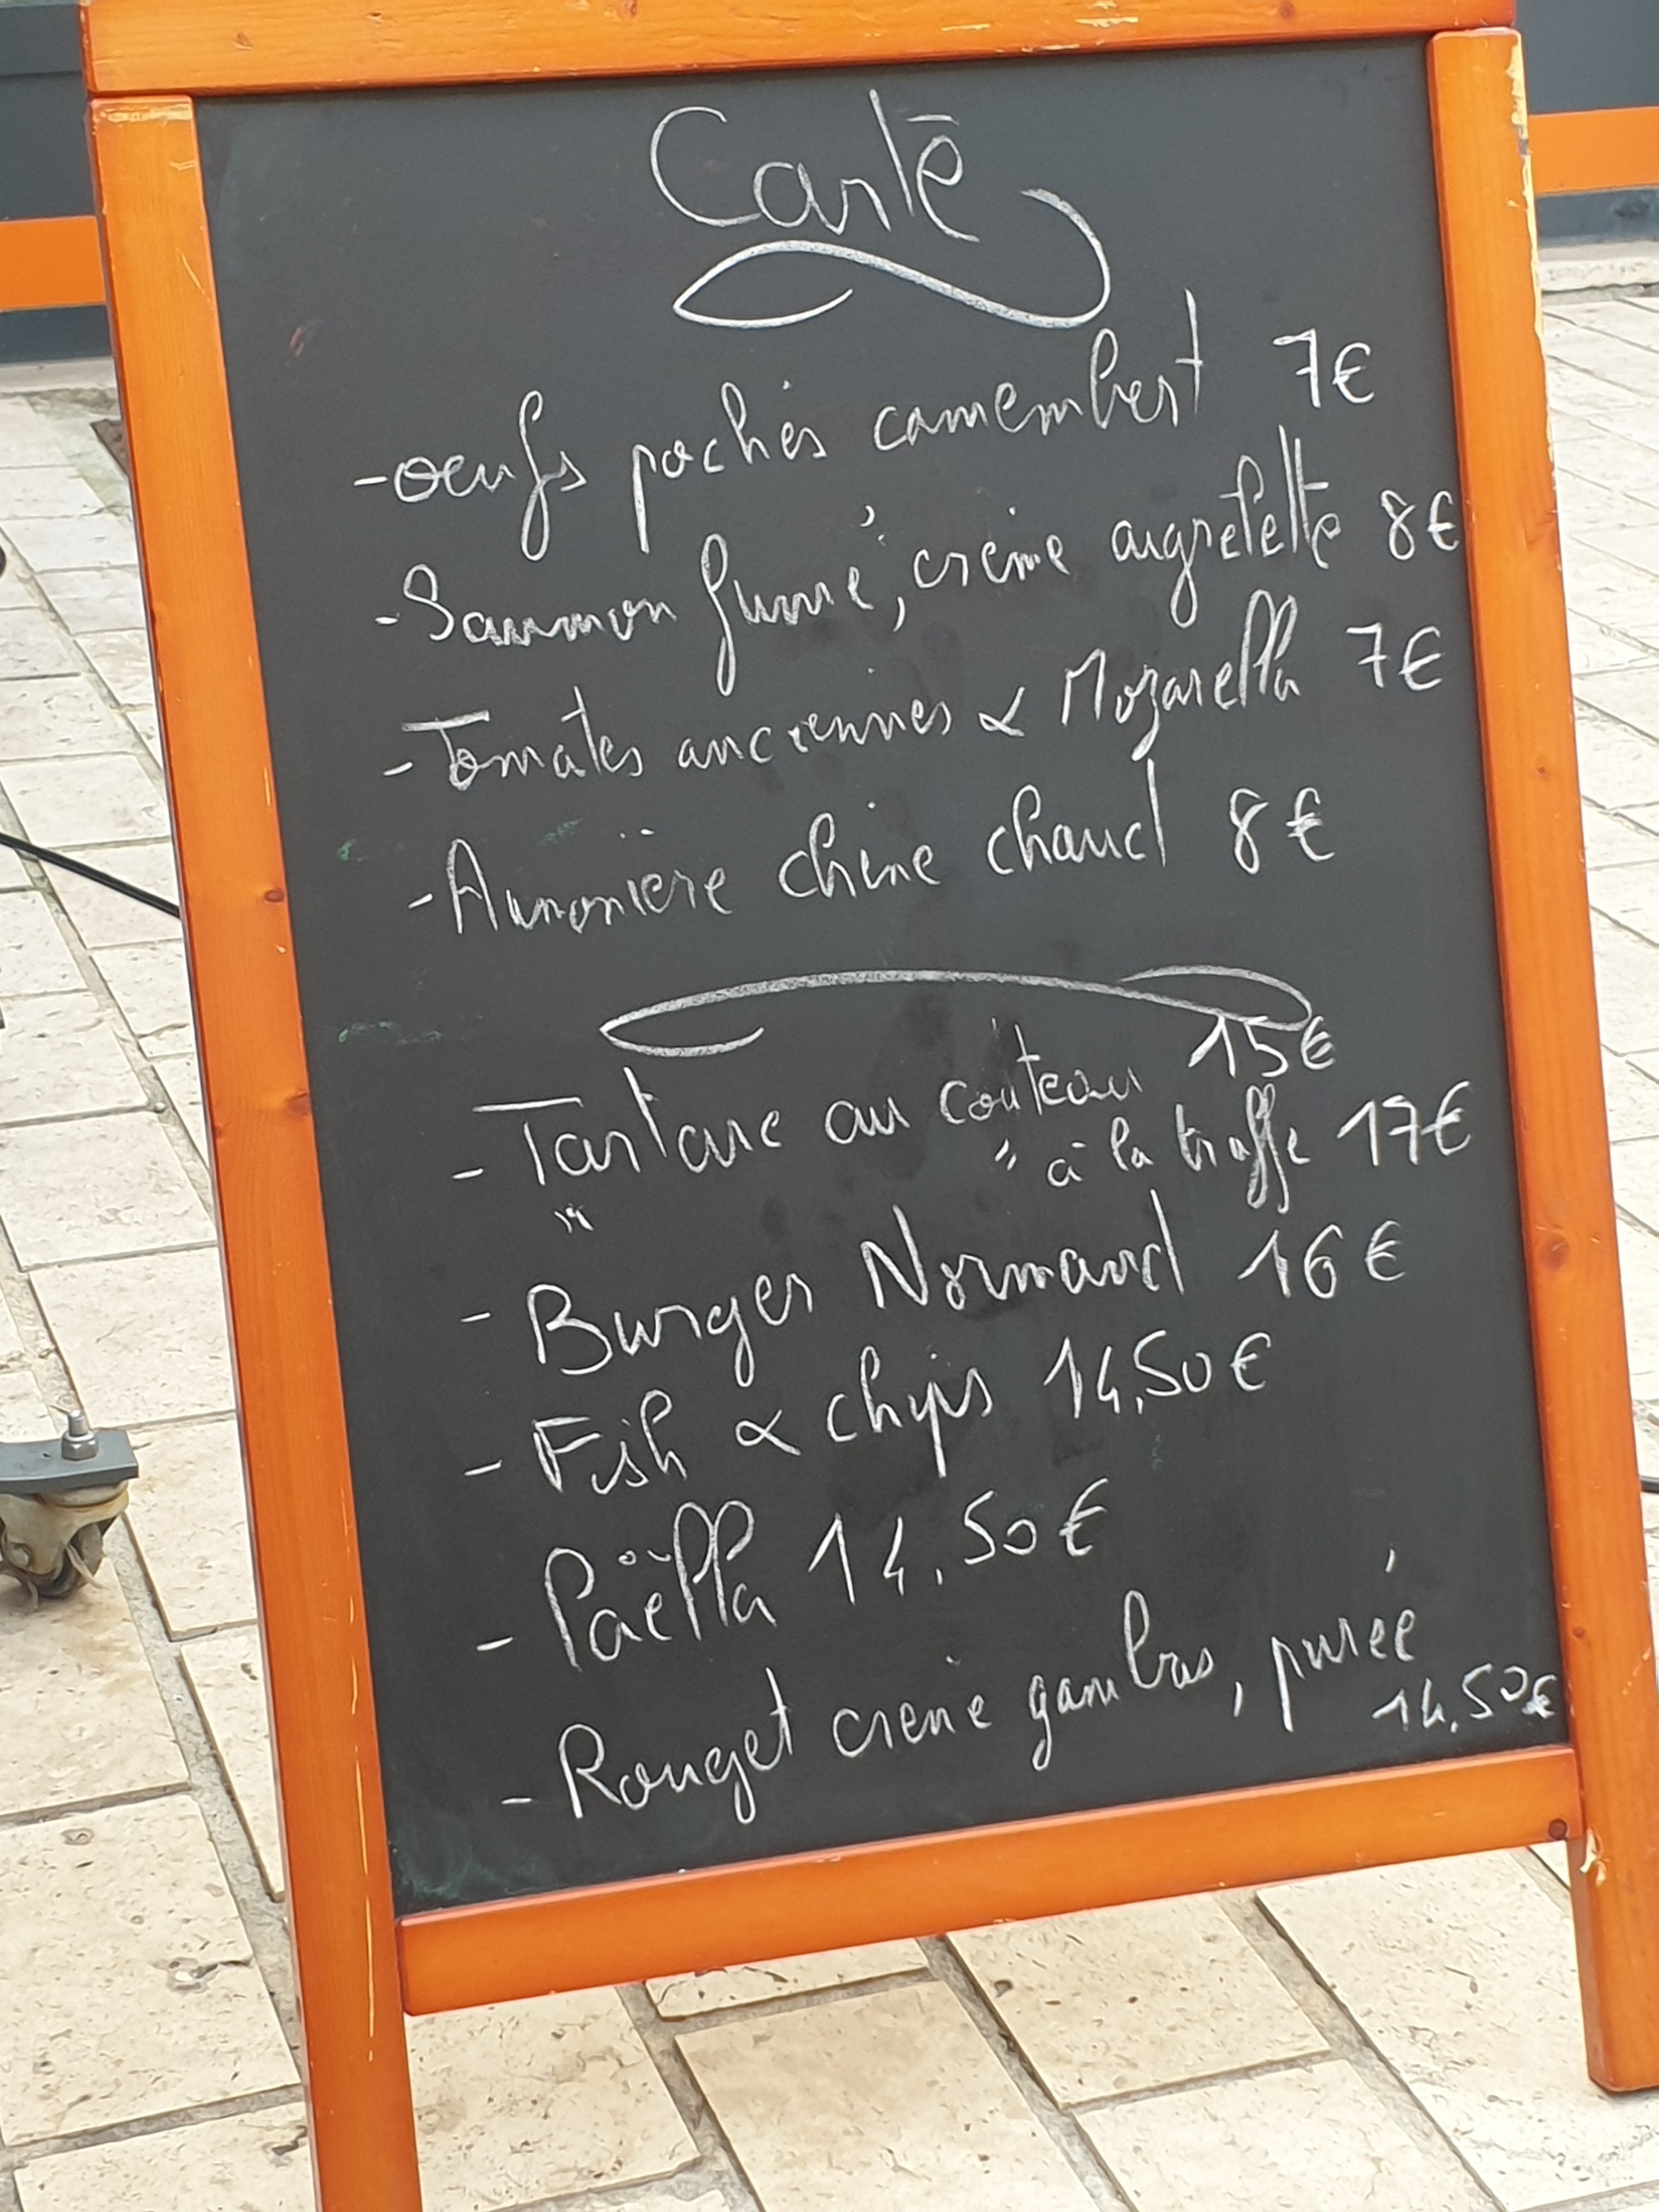 Carte
- oeufs pochés camembert 7€
- Saumon fumé, crème aigrelette 8€
- Tomates anciennes & Mozarella 7€
- Aumonière chèvre chaud 8€
- Tartare au couteau 15€
" " à la truffe 17€
- Burger Normand 16€
- Fish & chips 14,50€
- Paëlla 14,50€
- Rouget crème gambas, purée
14,50€